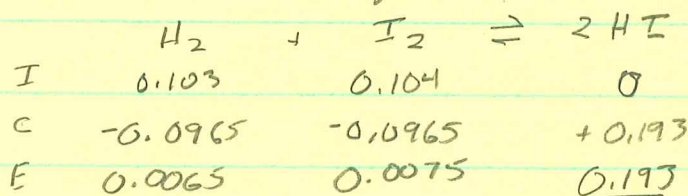 H₂ + I₂ ⇌ 2 HI
I 0.103 0.104 0
C -0.0965 -0.0965 + 0.193
E 0.0065 0.0075 0.193